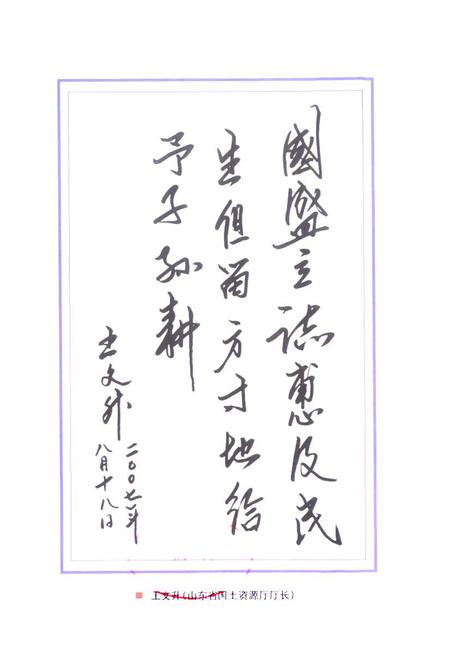 國盛立誌惠及民
生但留方寸地给
予子孙耕
王文升
二〇〇七年
八月十八日
王文升(山东省国土资源厅厅长)